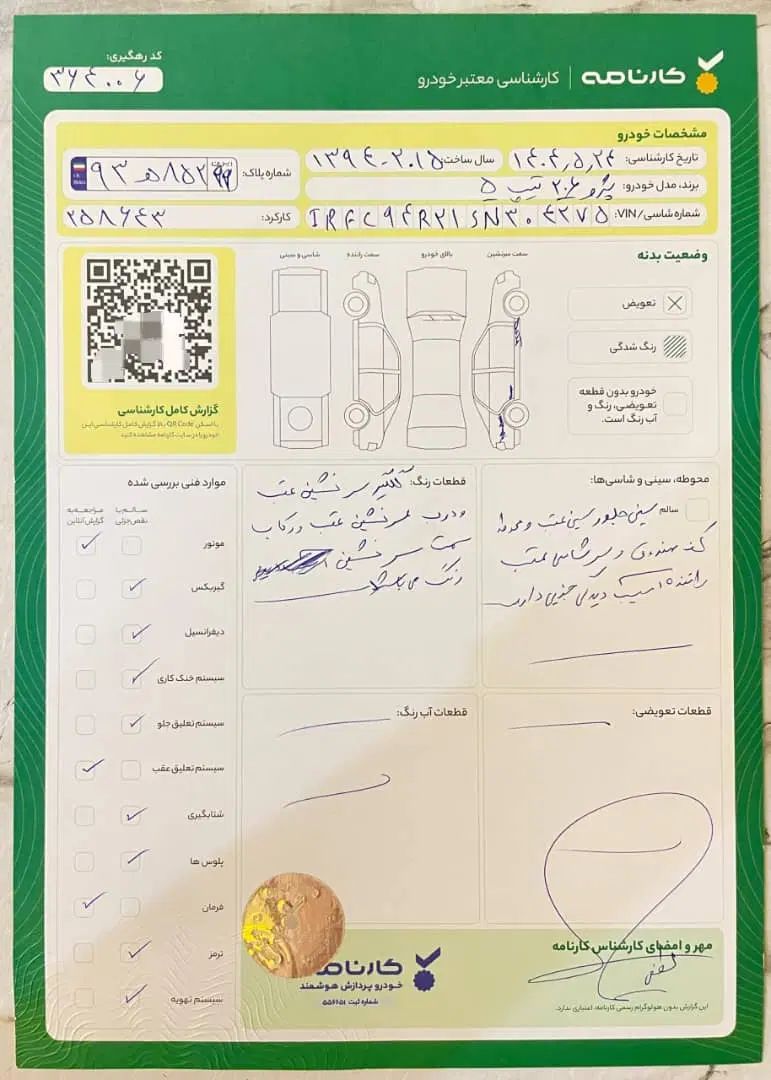 کارنامه | کارشناسی معتبر خودرو
کد رهگیری:
۳۶۴۰۰۶
مشخصات خودرو
تاریخ کارشناسی: ۱۴۰۴,۵,۲۴
سال ساخت: ۱۳۹۴-۲۰۱۵
شماره پلاک: ۹۳ ه ۸۵۲ ۹۹
برند، مدل خودرو: پژو ۲۰۶ تیپ ۵
شماره شاسی/VIN: IRFC94R21SN304275
کارکرد: ۲۵۸۶۴۳
وضعیت بدنه
تعویض
رنگ شدگی
خودرو بدون قطعه
تعویضی، رنگ و
آب رنگ است.
سمت سرنشین
بالای خودرو
سمت راننده
شاسی و سینی
گزارش کامل کارشناسی
با اسکن QR Code بالا گزارش کامل کارشناسی این
خودرو را در سایت کارنامه مشاهده کنید
محوطه، سینی و شاسی‌ها:
سالم
سینی جلو و سینی عقب و
کف صندوق و سرشاسی عقب
راننده آسیب دیدگی جزیی دارد
قطعات رنگ:
گلگیر سرنشین عقب
و درب سرنشین عقب و رکاب
سمت سرنشین
رنگ می‌باشد
قطعات تعویضی:
قطعات آب رنگ:
موارد فنی بررسی شده
سالم یا
نقص جزئی
مراجعه به
گزارش آنلاین
موتور
گیربکس
دیفرانسیل
سیستم خنک کاری
سیستم تعلیق جلو
سیستم تعلیق عقب
شتابگیری
پلوس ها
فرمان
ترمز
سیستم تهویه
کارنامه
خودرو پردازش هوشمند
شماره ثبت ۵۵۶۲۵۱
مهر و امضای کارشناس کارنامه
این گزارش بدون هولوگرام رسمی کارنامه، اعتباری ندارد.